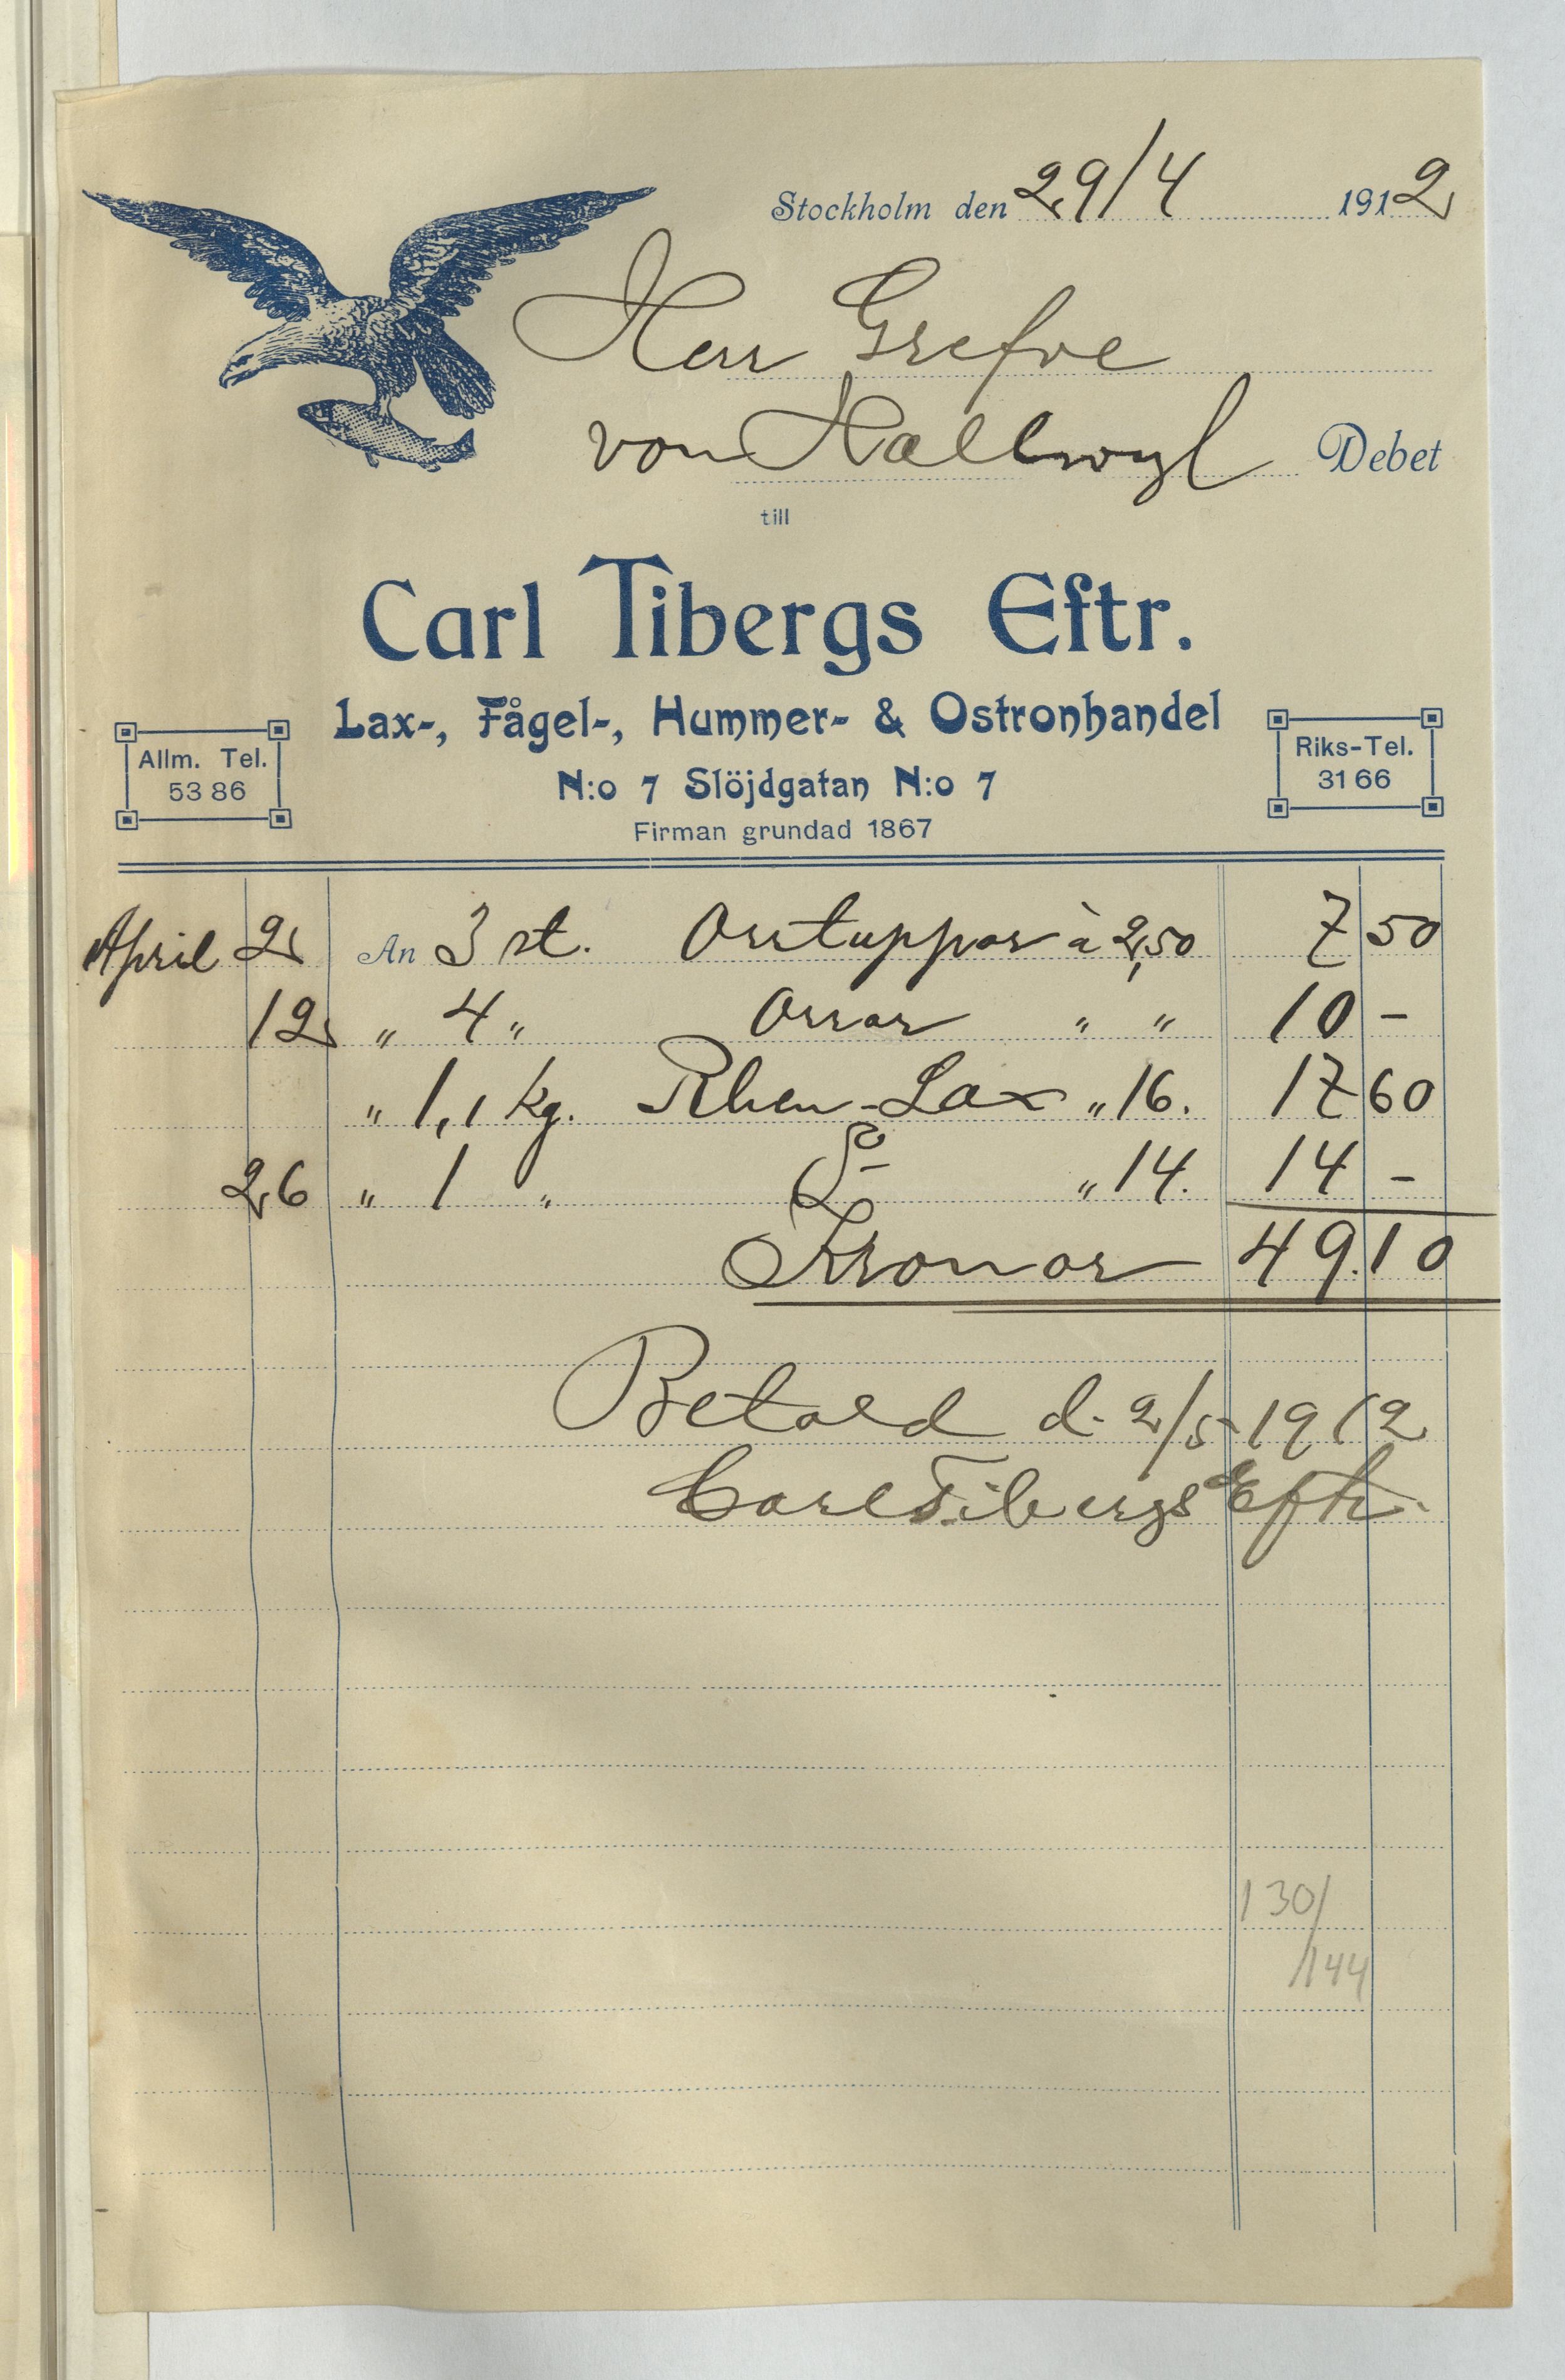 Stockholm den 29/4 1912
Herr Grefve
von Hallwyl Debet
till
Carl Tibergs Eftr.
Lax-, Fågel-, Hummer- & Ostronhandel
Allm. Tel. 53 86
N:o 7 Slöjdgatan N:o 7
Riks-Tel. 31 66
Firman grundad 1867
April 2 An 3 st. Orrtuppar à 2,50 7 50
12 " 4 " Orrar " " 10 -
" 1,1 kg. Rhen-Lax " 16. 17 60
26 " 1 " Do " 14. 14 -
Kronor 49.10
Betald d. 2/5 1912
Carl Tibergs Eftr.
130/
/144